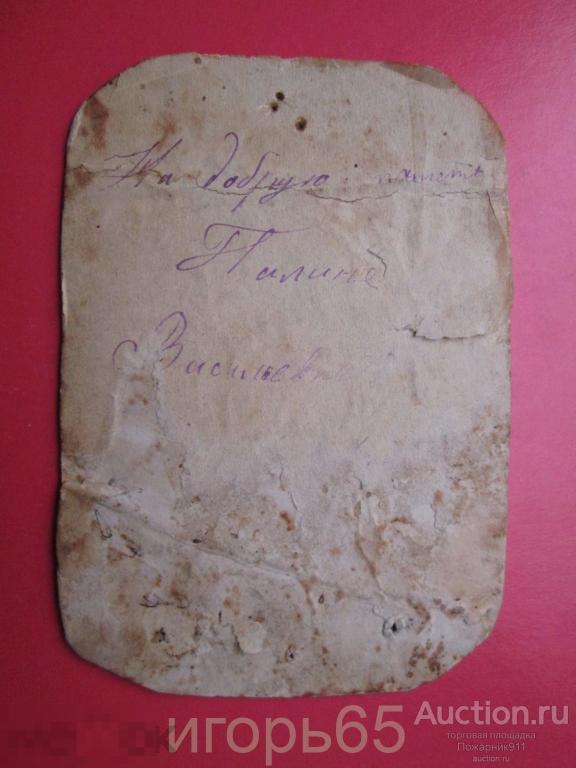 На добрую память
Палине
Васильевне
игорь65
Auction.ru
торговая площадка
Пожарник911
auction.ru